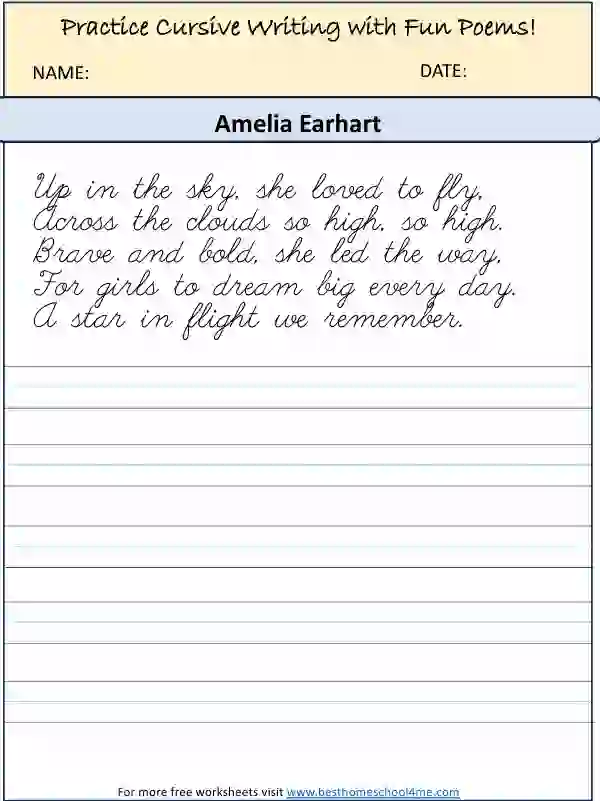 Practice Cursive Writing with Fun Poems!
NAME:
DATE:
Amelia Earhart
Up in the sky, she loved to fly,
Across the clouds so high, so high.
Brave and bold, she led the way,
For girls to dream big every day.
A star in flight we remember.
For more free worksheets visit www.besthomeschool4me.com